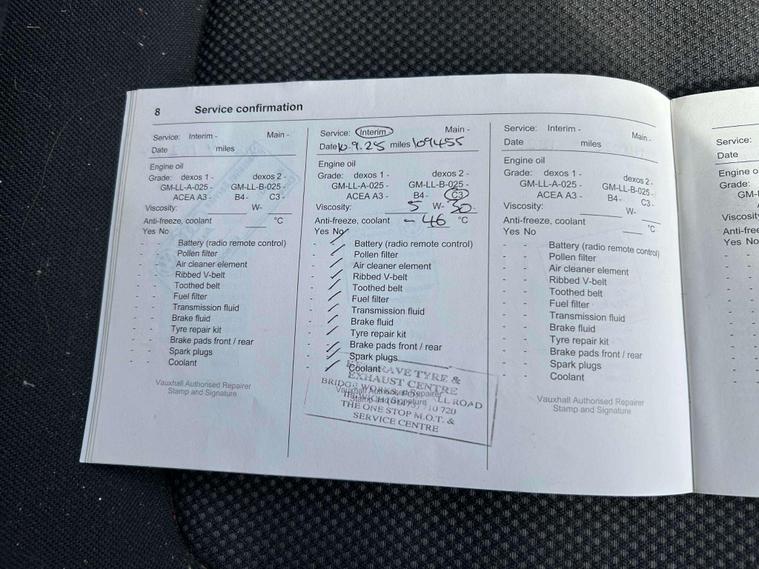 8 Service confirmation
Service: Interim - Main -
Date miles
Engine oil
Grade: dexos 1 - dexos 2 -
GM-LL-A-025 - GM-LL-B-025 -
ACEA A3 - B4 - C3 -
Viscosity: W-
Anti-freeze, coolant °C
Yes No
- - Battery (radio remote control)
- - Pollen filter
- - Air cleaner element
- - Ribbed V-belt
- - Toothed belt
- - Fuel filter
- - Transmission fluid
- - Brake fluid
- - Tyre repair kit
- - Brake pads front / rear
- - Spark plugs
- - Coolant
Vauxhall Authorised Repairer
Stamp and Signature
Service: Interim - Main -
Date 10.9.25 miles 109455
Engine oil
Grade: dexos 1 - dexos 2 -
GM-LL-A-025 - GM-LL-B-025 -
ACEA A3 - B4 - C3
Viscosity: 5 W- 30
Anti-freeze, coolant - 46 °C
Yes No
- ✓ Battery (radio remote control)
- ✓ Pollen filter
- ✓ Air cleaner element
- ✓ Ribbed V-belt
- ✓ Toothed belt
- ✓ Fuel filter
- ✓ Transmission fluid
- ✓ Brake fluid
- ✓ Tyre repair kit
- ✓ Brake pads front / rear
- ✓ Spark plugs
- ✓ Coolant
TYRE &
EXHAUST CENTRE
BRIDGE WORKS, ROAD
Vauxhall Authorised Repairer
Stamp and Signature
710 720
THE ONE STOP M.O.T. &
SERVICE CENTRE
Service: Interim - Main -
Date miles
Engine oil
Grade: dexos 1 - dexos 2 -
GM-LL-A-025 - GM-LL-B-025 -
ACEA A3 - B4 - C3 -
Viscosity: W-
Anti-freeze, coolant °C
Yes No
- - Battery (radio remote control)
- - Pollen filter
- - Air cleaner element
- - Ribbed V-belt
- - Toothed belt
- - Fuel filter
- - Transmission fluid
- - Brake fluid
- - Tyre repair kit
- - Brake pads front / rear
- - Spark plugs
- - Coolant
Vauxhall Authorised Repairer
Stamp and Signature
Service:
Date
Engine
Grade:
Yes No